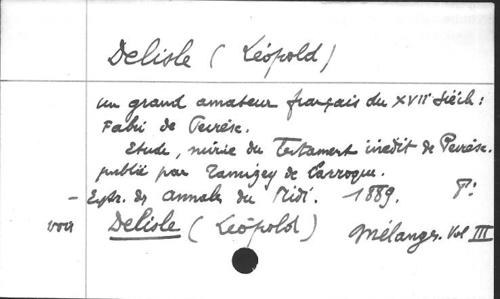 Delisle (Léopold)
un grand amateur français du XVIIe Siècle :
Fabri de Peiresc.
Etude, suivie du Testament inédit de Peiresc.
publié par Tamizey de Larroque.
- Extr. des Annales du Midi. 1889. P:
voir Delisle (Léopold) Mélanges. Vol III